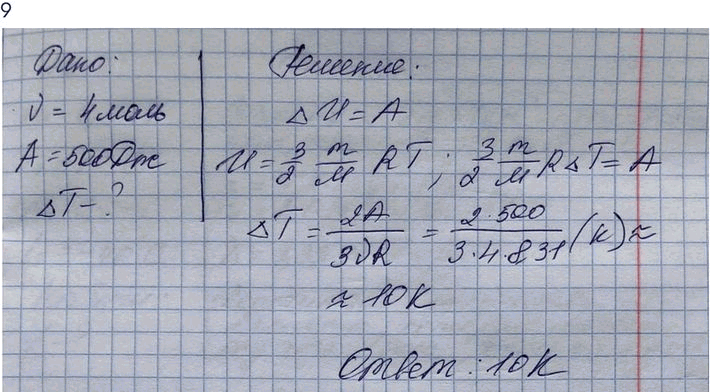 9
Дано:
ν = 4 моль
A = 500 Дж
ΔT - ?
Решение:
ΔU = A
U = 3/2 m/M RT ; 3/2 m/M RΔT = A
ΔT = 2A/3νR = 2·500/3·4·8,31 (К) ≈
≈ 10К
Ответ: 10К